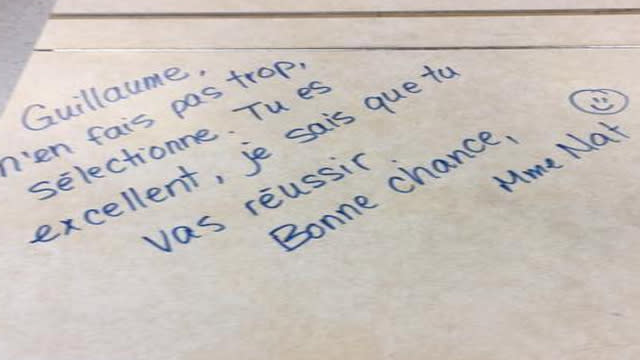 Guillaume,
n'en fais pas trop,
sélectionne. Tu es
excellent, je sais que tu
vas réussir
Bonne chance,
Mme Nat